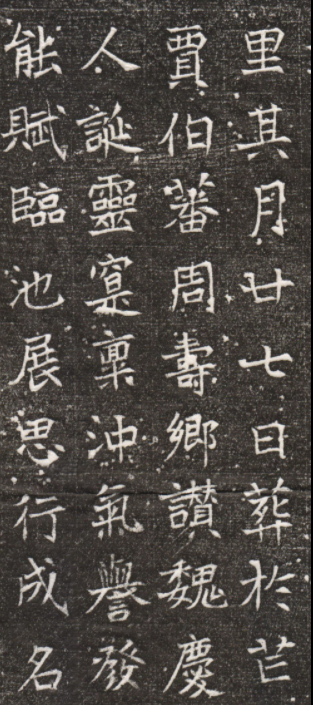 里其月廿七日葬於芒
賈伯蕃周壽鄉讚魏慶
人誕靈寔稟沖氣譽發
能賦臨池展思行成名